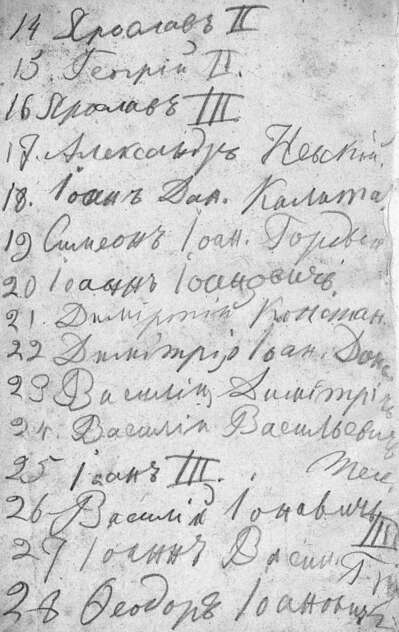 14 Ярославъ II
15. Георгій II.
16 Ярославъ III
17. Александръ Невскій.
18. Іоанъ Дан. Калита
19 Симеонъ Іоан. Гордый
20 Іоаннъ Іоановичъ.
21. Димитрій Констан.
22 Димитрій Іоан. Донс.
23 Василій Димитрі
24. Василій Васильевичъ
25 Іоанъ III.
26 Василій Іоновичъ
III
27 Іоаннъ Васил.
28 Ѳеодоръ Іоановичъ